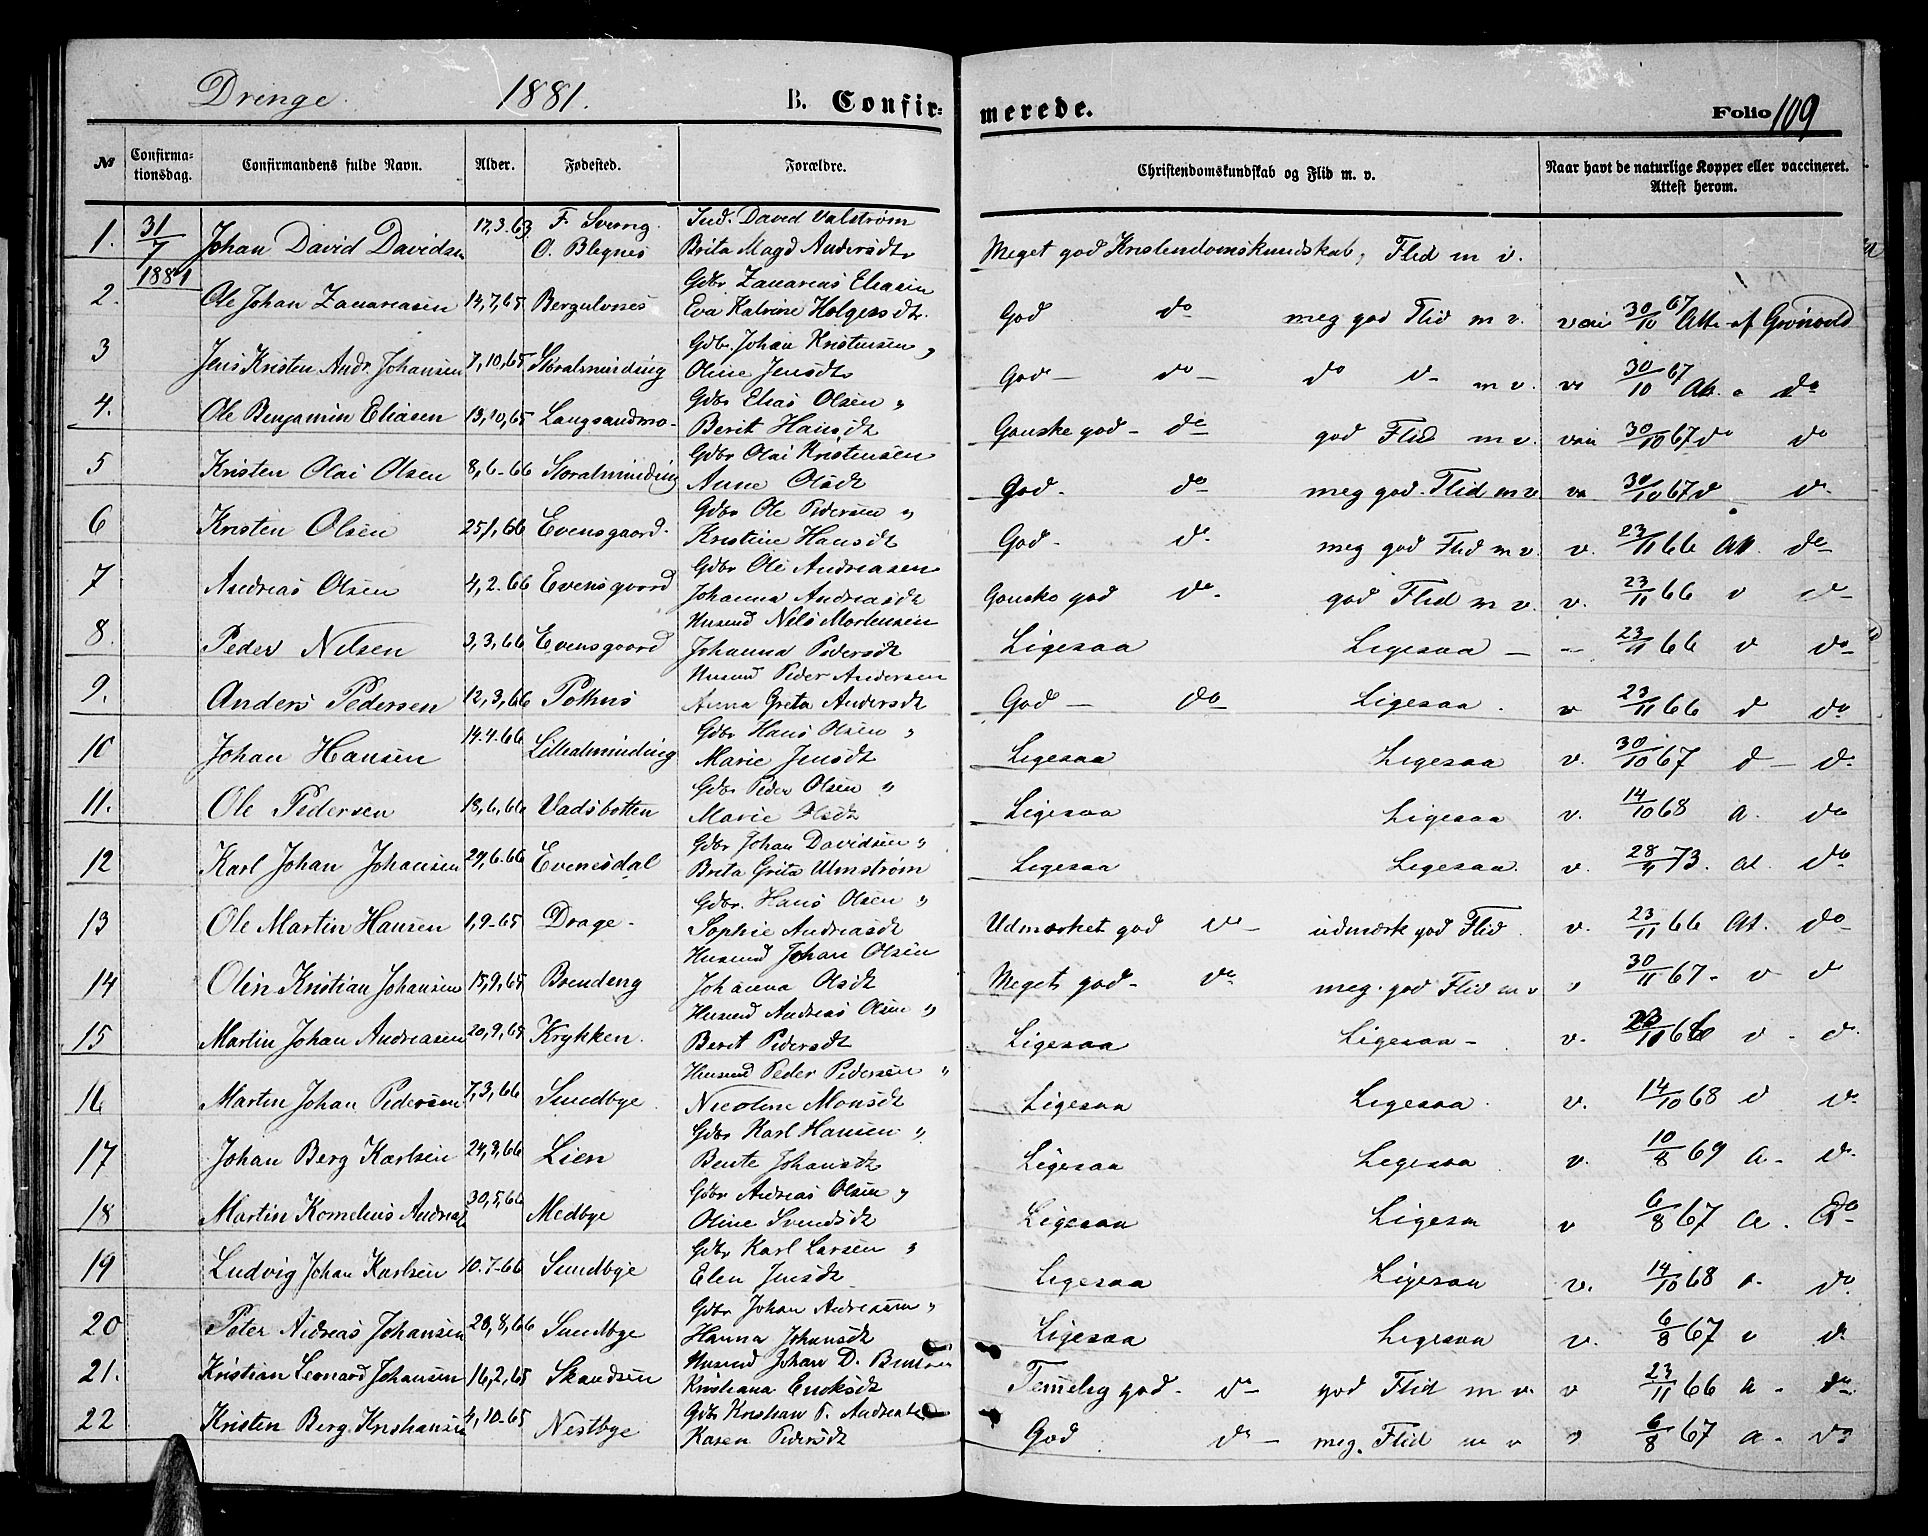 Drenge. 1881. B. Confirmerede. Folio 109
№ Confirmationsdag. Confirmandens fulde Navn. Alder. Fødested. Forældre. Christendomskundskab og Flid m. v. Naar havt de naturlige Kopper eller vaccineret. Attest herom.
1. 31/7 1881 Johan David Davidsen 17,3.63 F. Svensg. O. Blegnes Ind. David Valstrøm
Brita Magd Andersdt. Meget god Kristendomskundskab, Flid m v.
2. Ole Johan Zacariasen 14,7,65 Bergulvnes Gdbr Zacarias Eliasen
Eva Katrine Holgersdt. God do meg god Flid m v. 30/10 67 Att. af Grönvold
3 Jens Kristen Andr. Johansen 7,10,65 Storalminding Gdbr. Johan Kristensen „
Oline Jensdt. God – do – do d– m v. va 30/10 67 At. „ do
4. Ole Benjamin Eliasen 13,10,65 Langsandmo– Gdbr Elias Olsen „
Berit Hansdt Ganske god – do god Flid m v. 30/10 67 do do
5 Kristen Olai Olsen 8,6–66 Storalminding Gdbr Olai Kristensen
Anne Olsdt God. do meg god. Flid m v va 30/10 67 d d.
6 Kristen Olsen 25/1,66 Evensgaard. Gdbr Ole Pedersen „
Kristine Hansdt God. d. meg god Flid m v. v. 23/11 66 At. do
7 Andreas Olsen 4,2.66 Evensgaard Gdbr Ole Andreasen
Johanna Andreasdt Ganske god do. god Flid m v. v. 23/11 66 d do
8. Peder Nelsen 3,3,66 Evensgaard Husmd Nels Mortensen
Johanna Pedersdt Ligesaa Ligesaa – – 23/11 66 d do
9. Anders Pedersen 12,3,66 Husmd Peder Andersen
Anna Greta Andersdt God – do Ligesaa. v 23/11 66 d do
10 Johan Hansen 14.4.66 Lillealminding Gdbr Hans Olsen „
Marie Jensdt Ligesaa Ligesaa v. 30/10 67 d – d.
11. Ole Pedersen 18,6,66 Vadsbotten Gdbr Peder Olsen „
Marie Olsdt Ligesaa Ligesaa v. 14/10 68 a. do
12 Karl Johan Johansen 29,6.66 Evenesdal Gdbr Johan Davidsen „
Brita Grita Almstrøm Ligesaa Ligesaa. v. 28/4 73. a. do
13 Ole Martin Hansen 1,9–65 Drage– Gdbr. Hans Olsen „
Sophie Andreasdt Udmærket god do– udmærk god Flid. v. 23/11 66 At. do
14 Olin Kristian Johansen 15,9,65 Brendeng Husmd Johan Olsen
Johanna Olsdt Meget god– do. meg. god Flid m v „ 30/11 67– d d
15 Martin Johan Andreasen 20,9,65 Krykken. Husmd Andreas Olsen „
Berit Pedersdt Ligesaa Ligesaa– v. 23/11 66 d – d.
16 Martin Johan Pedersen 7,3,66 Sundbye Husmd Peder Pedersen „
Nicoline Monsdt Ligesaa Ligesaa. v. 14/10 68 d d.
17 Johan Berg Karlsen 24,3,66 Lien Gdbr Karl Hansen „
Bente Johansdt Ligesaa Ligesaa v. 10/8 69 a– d.
18 Martin Kornelius Andreas 30,5,66 Medbye Gdbr Andreas Olsen „
Oline Svendsdt Ligesaa Ligesaa v 6/8 67 a. do
19 Ludvig Johan Karlsen 10.7–66 Sundbye Gdbr Karl Larsen „
Elen Jensdt. Ligesaa Ligesaa v. 14/10 68 a. do
20 Peter Andreas Johansen 28,8,66 Sundbye Gdbr Johan Andreasen „
Hanna Johansdt Ligesaa Ligesaa v. 6/8 67 d d.
21. Kristian Leonard Johansen 16,2,65 Skandsen Husmd Johan D.
Kristiana Enoksdt Temelig god. do– god Flid m v. v 23/11 66 a – do
22 Kristen Berg Kristiansen 4,10–65 Nestbye Gdbr Kristian P.
Karen Pedersdt God do – meg. Flid m v „ 6/8 67 a – do